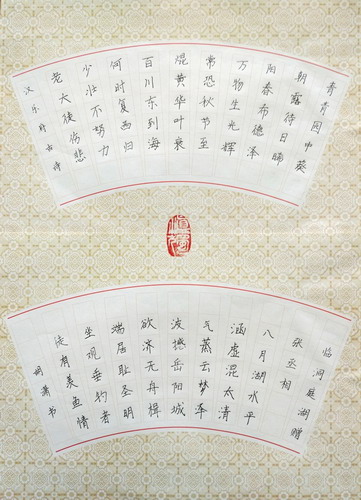 青青园中葵
朝露待日晞
阳春布德泽
万物生光辉
常恐秋节至
焜黄华叶衰
百川东到海
何时复西归
少壮不努力
老大徒伤悲
汉乐府古诗
临洞庭湖赠
张丞相
八月湖水平
涵虚混太清
气蒸云梦泽
波撼岳阳城
欲济无舟楫
端居耻圣明
坐观垂钓者
徒有羡鱼情
书